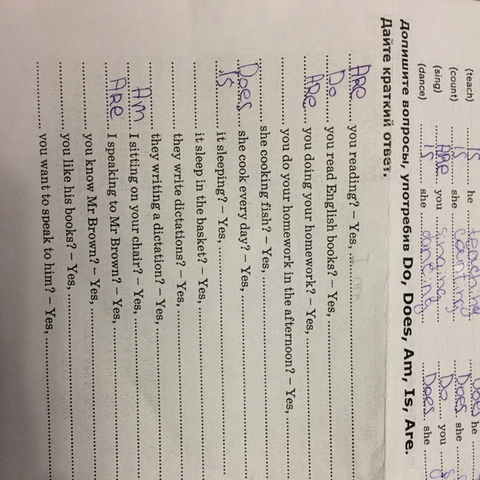 (teach) ........ Is ........ he ... teaching ........ Does he
(count) ........ Is ........ she ... counting ........ Does she
(sing) ........ ARE ........ you ... singing ........ Do you
(dance) ........ Is ........ she ... dancing ........ Does she
Допишите вопросы, употребив Do, Does, Am, Is, Are.
Дайте краткий ответ.
ARE you reading? – Yes, ........
Do you read English books? – Yes, ........
ARE you doing your homework? – Yes, ........
........ you do your homework in the afternoon? – Yes, ........
........ she cooking fish? – Yes, ........
Does she cook every day? – Yes, ........
Is it sleeping? – Yes, ........
........ it sleep in the basket? – Yes, ........
........ they write dictations? – Yes, ........
........ they writing a dictation? – Yes, ........
Am I sitting on your chair? – Yes, ........
ARE I speaking to Mr Brown? – Yes, ........
........ you know Mr Brown? – Yes, ........
........ you like his books? – Yes, ........
........ you want to speak to him? – Yes, ........